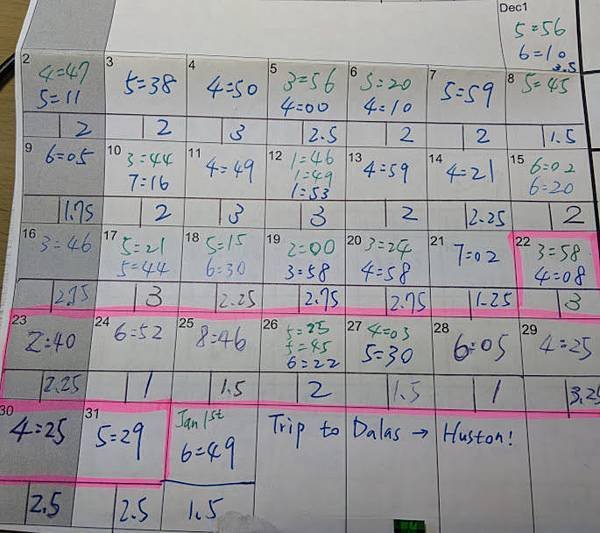 Dec1
5=56
6=10
2.5
2 3 4 5 6 7 8
4=47 5=38 4=50 3=56 5=20 5=59 5=45
5=11 4=00 4=10
2 2 3 2.5 2 2 1.5
9 10 11 12 13 14 15
6=05 3=44 4=49 1=46 4=59 4=21 6=02
7=16 1=49 6=20
1=53
1.75 2 3 3 2 2.25 2
16 17 18 19 20 21 22
3=46 5=21 5=15 2=00 3=24 7=02 3=58
5=44 6=30 3=58 4=58 4=08
2.75 3 2.25 2.75 2.75 1.25 3
23 24 25 26 27 28 29
2=40 6=52 8=46 5=25 4=03 6=05 4=25
5=30
6=22
2.25 1 1.5 2 1.5 1 3.25
30 31 Jan 1st
4=25 5=29 6=49 Trip to Dalas → Huston!
2.5 2.5 1.5